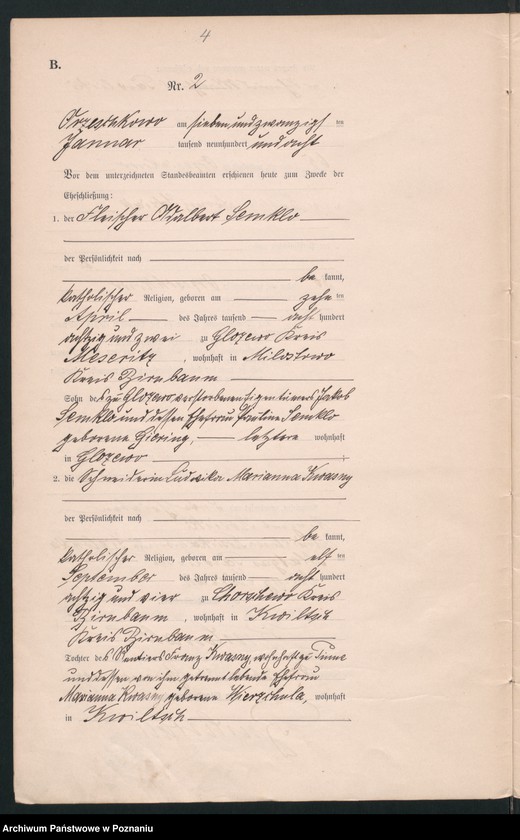 4
B.
Nr. 2
Orzeschkowo am siebenundzwanzigsten
Januar tausend neunhundert und acht
Vor dem unterzeichneten Standesbeamten erschienen heute zum Zwecke der
Eheschließung:
1. der Fleischer Adalbert Semklo
der Persönlichkeit nach
be kannt,
katholischer Religion, geboren am zehnten
April des Jahres tausend acht hundert
achtzig und zwei zu Glozewo Kreis
Meseritz, wohnhaft in Milostowo
Kreis Birnbaum
Sohn des zu Glozewo verstorbenen Eigentümers Jakob
Semklo und dessen Ehefrau Pauline Semklo
geborene letztere wohnhaft
in Glozewo
2. die Schneiderin Ludwika Marianna Kwasny
der Persönlichkeit nach
be kannt,
katholischer Religion, geboren am elften
September des Jahres tausend acht hundert
achtzig und vier zu Chorzewo Kreis
Birnbaum, wohnhaft in Kwiltsch
Kreis Birnbaum
Tochter des Rentiers Franz Kwasny, wohnhaft zu
und dessen von ihm getrennt lebende Ehefrau
Marianna Kwasny geborene wohnhaft
in Kwiltsch
Archiwum Państwowe w Poznaniu